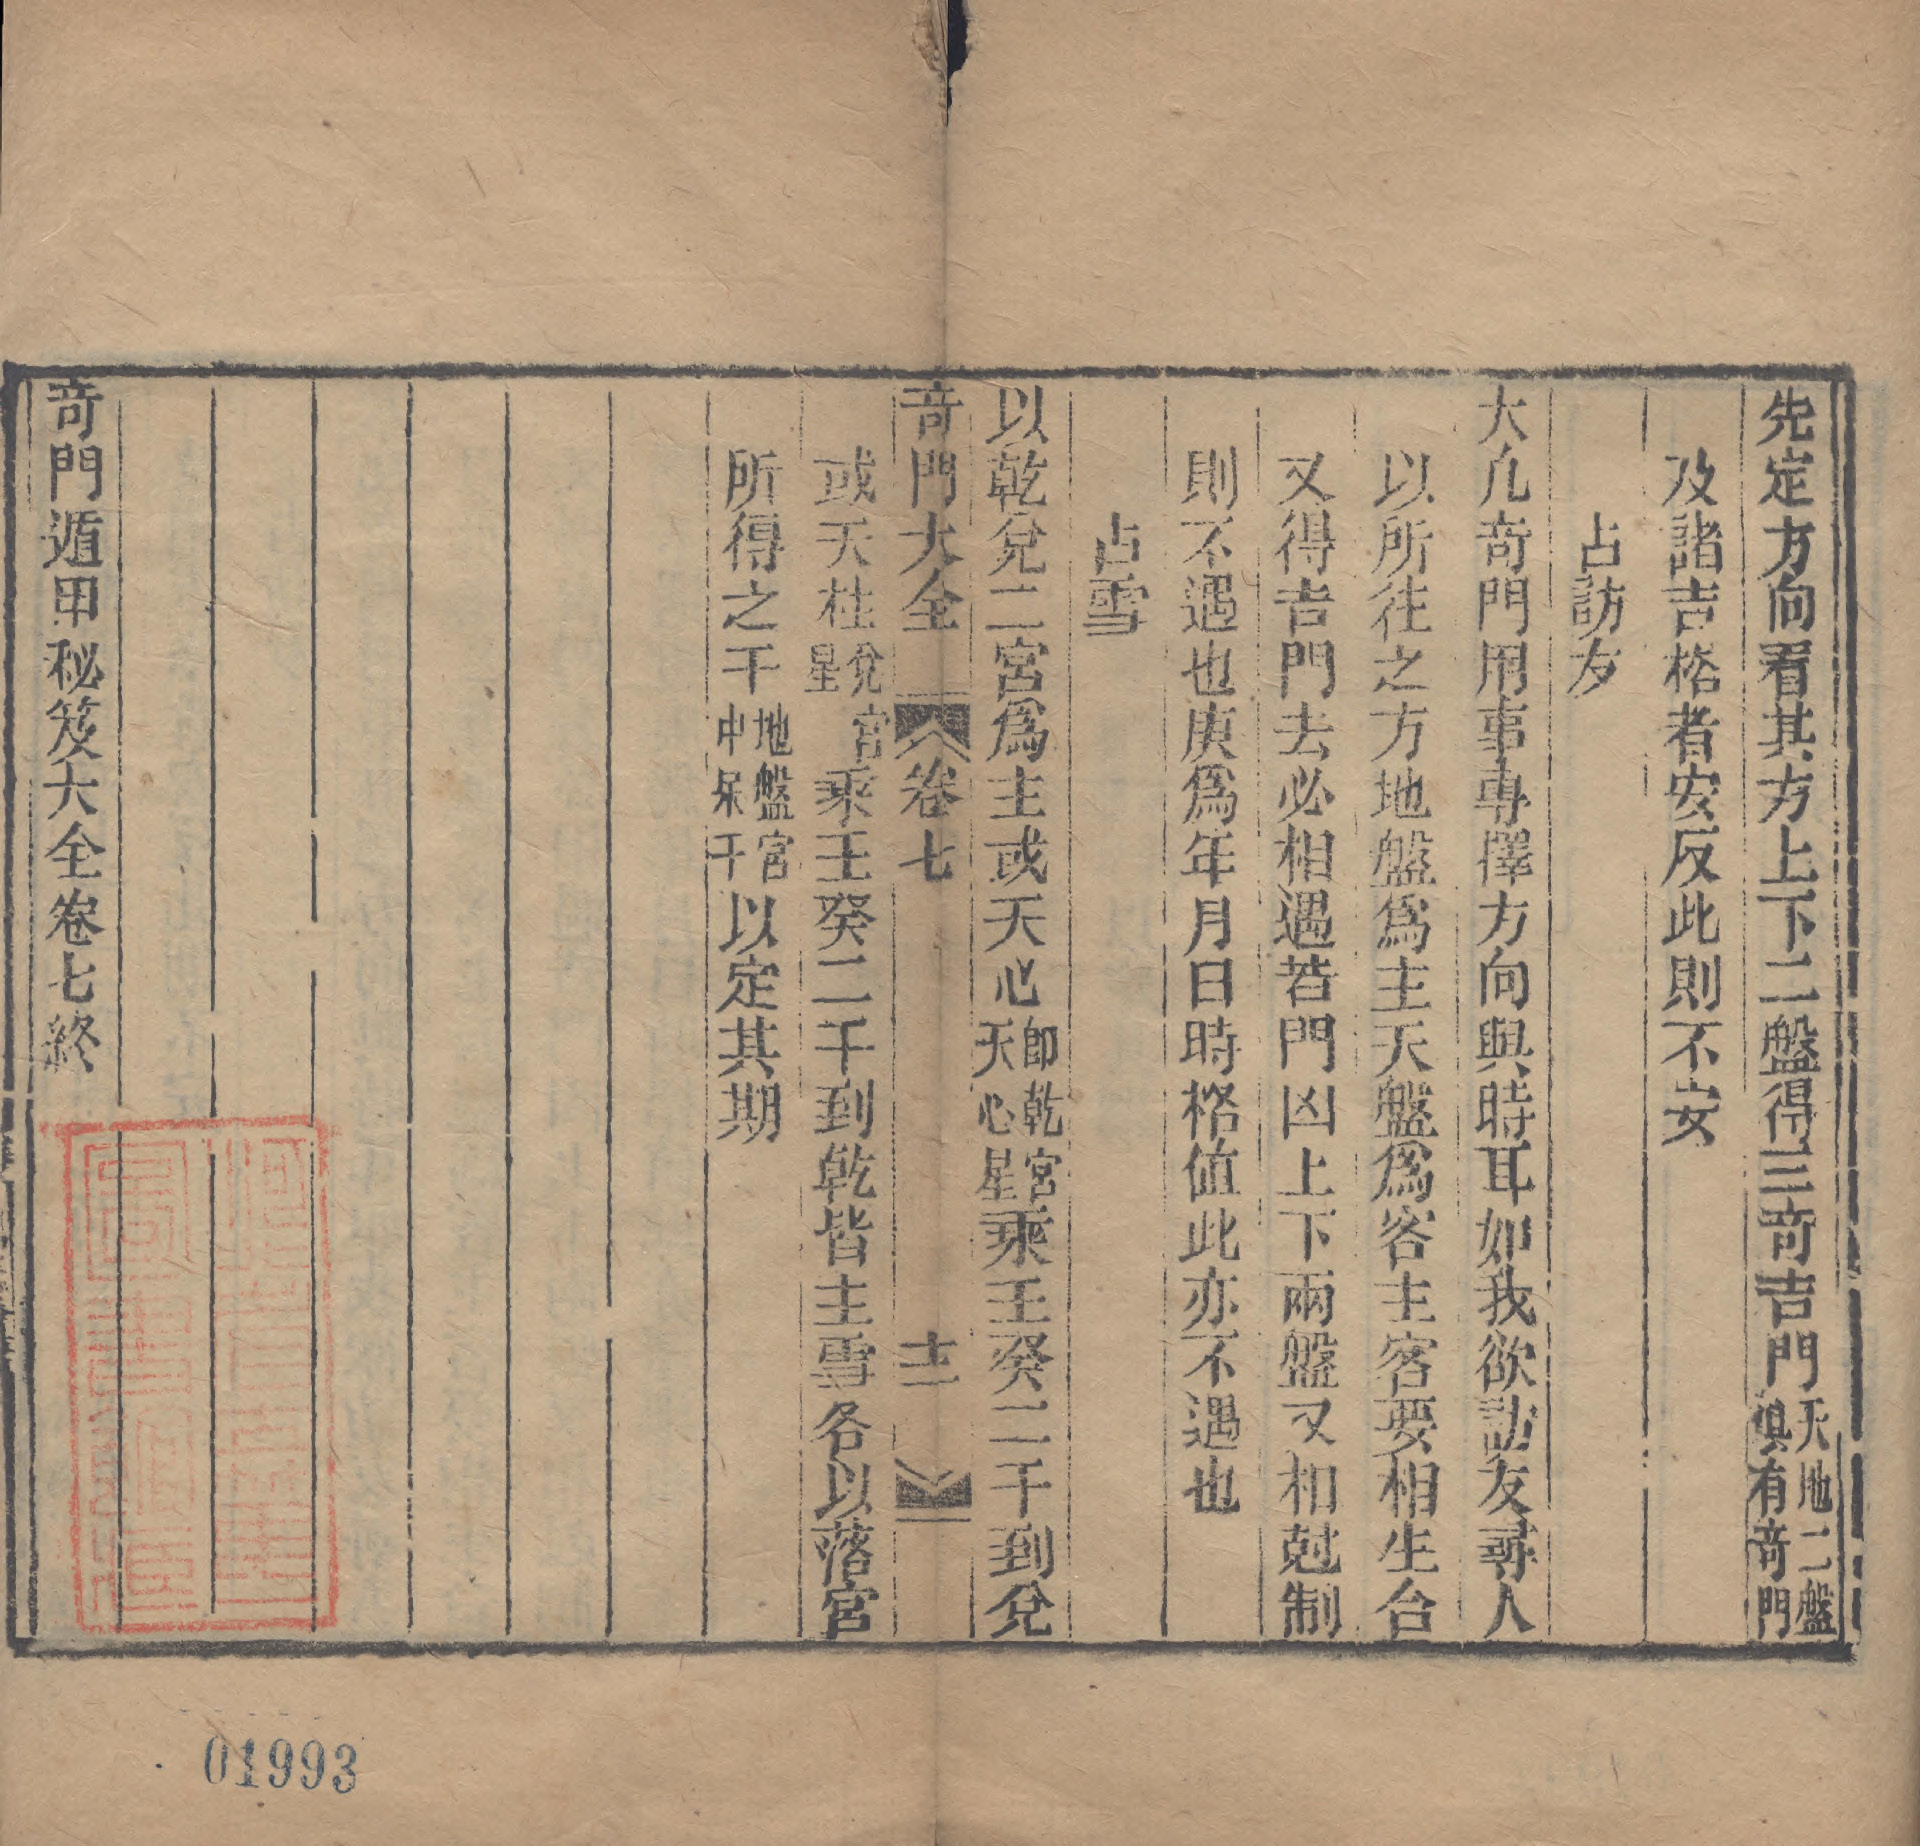 先定方向看其方上下二盤得三竒吉門天地二盤俱有竒門
及諸吉格者安反此則不安
占訪友
大凡竒門用事專擇方向與時耳如我欲訪友尋人
以所往之方地盤爲主天盤爲客主客要相生合
又得吉門去必相遇若門凶上下兩盤又相尅制
則不遇也庚爲年月日時格值此亦不遇也
占雪
以乾兌二宮爲主或天心即乾宮天心星乘壬癸二干到兌
竒門大全 卷七 十二
或天柱兌宮星乘壬癸二干到乾皆主雪各以落宮
所得之干地盤宮中某干以定其期
竒門遁甲秘笈大全卷七終
01993